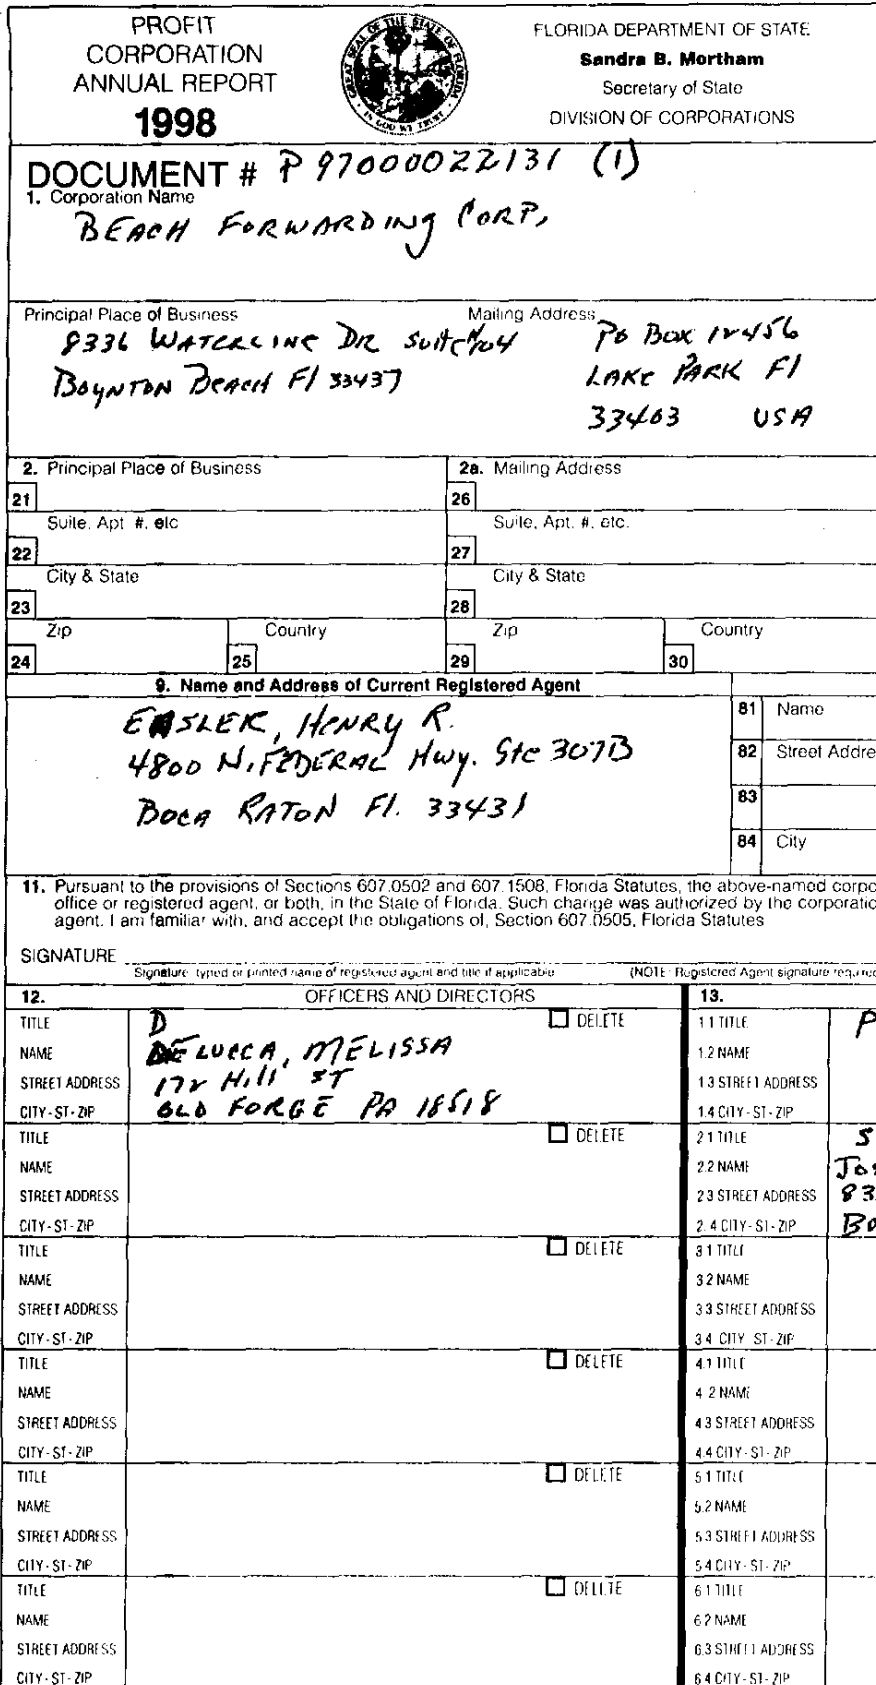 PROFIT
CORPORATION
ANNUAL REPORT
1998
GREAT SEAL OF THE STATE OF FLORIDA
IN GOD WE TRUST
FLORIDA DEPARTMENT OF STATE
Sandra B. Mortham
Secretary of State
DIVISION OF CORPORATIONS
DOCUMENT # P97000022131 (1)
1. Corporation Name
BEACH FORWARDING CORP.
Principal Place of Business
8336 WATERLINE DR SUITE #104
BOYNTON BEACH Fl 33437
Mailing Address
PO BOX 12456
LAKE PARK Fl
33403 USA
2. Principal Place of Business
2a. Mailing Address
21
26
Suite, Apt #, etc
Suite, Apt. #, etc.
22
27
City & State
City & State
23
28
Zip
Country
Zip
Country
24
25
29
30
9. Name and Address of Current Registered Agent
EASLER, HENRY R.
4800 N. FEDERAL Hwy. Ste 307B
BOCA RATON Fl. 33431
81 Name
82 Street Addre
83
84 City
11. Pursuant to the provisions of Sections 607.0502 and 607.1508, Florida Statutes, the above-named corpo
office or registered agent, or both, in the State of Florida. Such change was authorized by the corporatio
agent. I am familiar with, and accept the obligations of, Section 607.0505, Florida Statutes
SIGNATURE
Signature, typed or printed name of registered agent and title if applicable
(NOTE: Registered Agent signature required
12. OFFICERS AND DIRECTORS
13.
TITLE D DELETE
NAME DELUCCA, MELISSA
STREET ADDRESS 172 Hill ST
CITY-ST-ZIP OLD FORGE PA 18518
1.1 TITLE P
1.2 NAME
1.3 STREET ADDRESS
1.4 CITY-ST-ZIP
TITLE DELETE
NAME
STREET ADDRESS
CITY-ST-ZIP
2.1 TITLE S
2.2 NAME Jos
2.3 STREET ADDRESS 83
2.4 CITY-ST-ZIP Bo
TITLE DELETE
NAME
STREET ADDRESS
CITY-ST-ZIP
3.1 TITLE
3.2 NAME
3.3 STREET ADDRESS
3.4 CITY-ST-ZIP
TITLE DELETE
NAME
STREET ADDRESS
CITY-ST-ZIP
4.1 TITLE
4.2 NAME
4.3 STREET ADDRESS
4.4 CITY-ST-ZIP
TITLE DELETE
NAME
STREET ADDRESS
CITY-ST-ZIP
5.1 TITLE
5.2 NAME
5.3 STREET ADDRESS
5.4 CITY-ST-ZIP
TITLE DELETE
NAME
STREET ADDRESS
CITY-ST-ZIP
6.1 TITLE
6.2 NAME
6.3 STREET ADDRESS
6.4 CITY-ST-ZIP